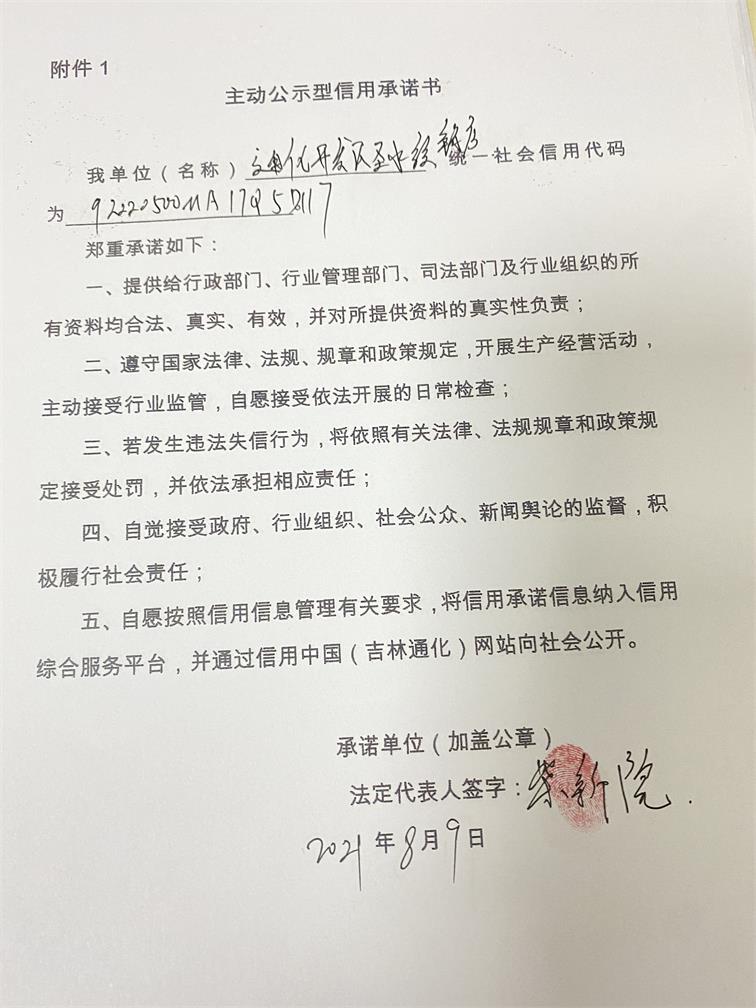 附件1
主动公示型信用承诺书
我单位（名称）开发区 统一社会信用代码
为 92220500MA17Q5
郑重承诺如下：
一、提供给行政部门、行业管理部门、司法部门及行业组织的所
有资料均合法、真实、有效，并对所提供资料的真实性负责；
二、遵守国家法律、法规、规章和政策规定，开展生产经营活动，
主动接受行业监管，自愿接受依法开展的日常检查；
三、若发生违法失信行为，将依照有关法律、法规规章和政策规
定接受处罚，并依法承担相应责任；
四、自觉接受政府、行业组织、社会公众、新闻舆论的监督，积
极履行社会责任；
五、自愿按照信用信息管理有关要求，将信用承诺信息纳入信用
综合服务平台，并通过信用中国（吉林通化）网站向社会公开。
承诺单位（加盖公章）
法定代表人签字：柴新院
2021年8月9日